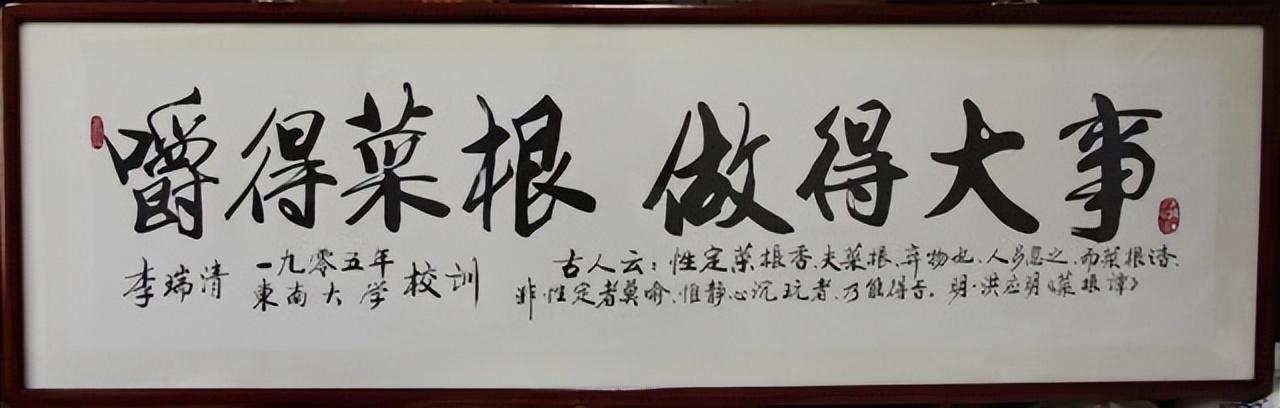 嚼得菜根 做得大事
李瑞清
一九零五年
東南大学
校训
古人云：性定菜根香、夫菜根、弃物也、人多忽之、而菜根
非·性定者莫喻、惟静心沉玩者、乃能得旨。明·洪应明《菜根谭》